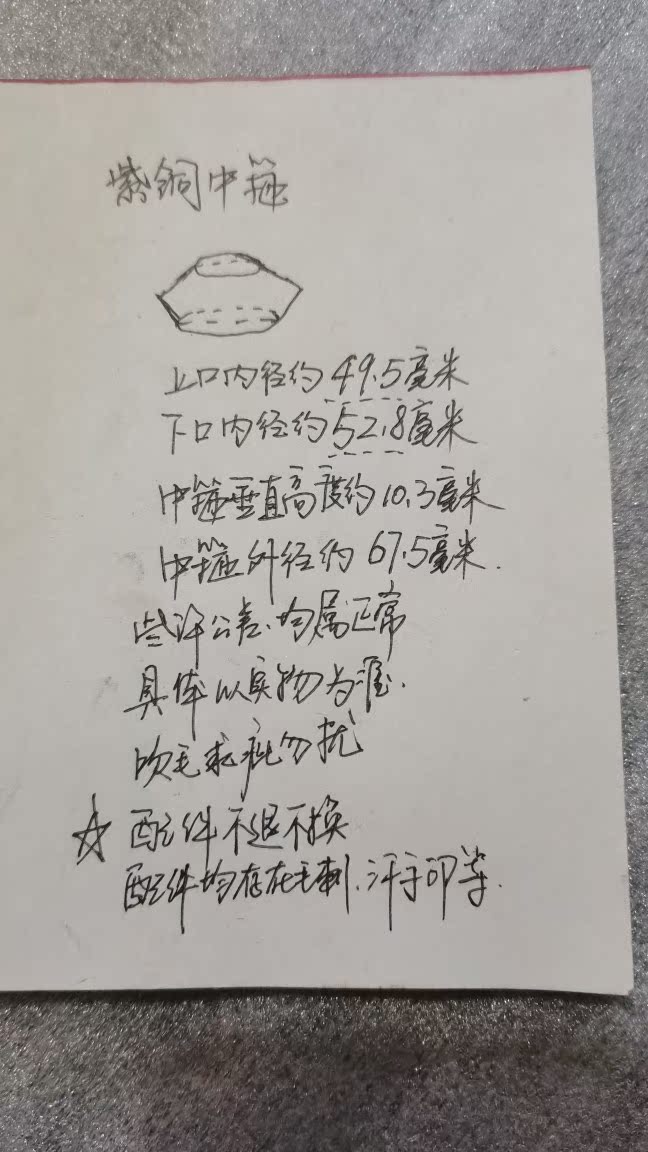 紫铜中箍
上口内径约49.5毫米
下口内径约52.8毫米
中箍垂直高度约10.3毫米
中箍外径约67.5毫米.
些许公差、均属正常
具体以实物为准.
吹毛求疵勿扰
☆配件不退不换
配件均存在毛刺、汗手印等.